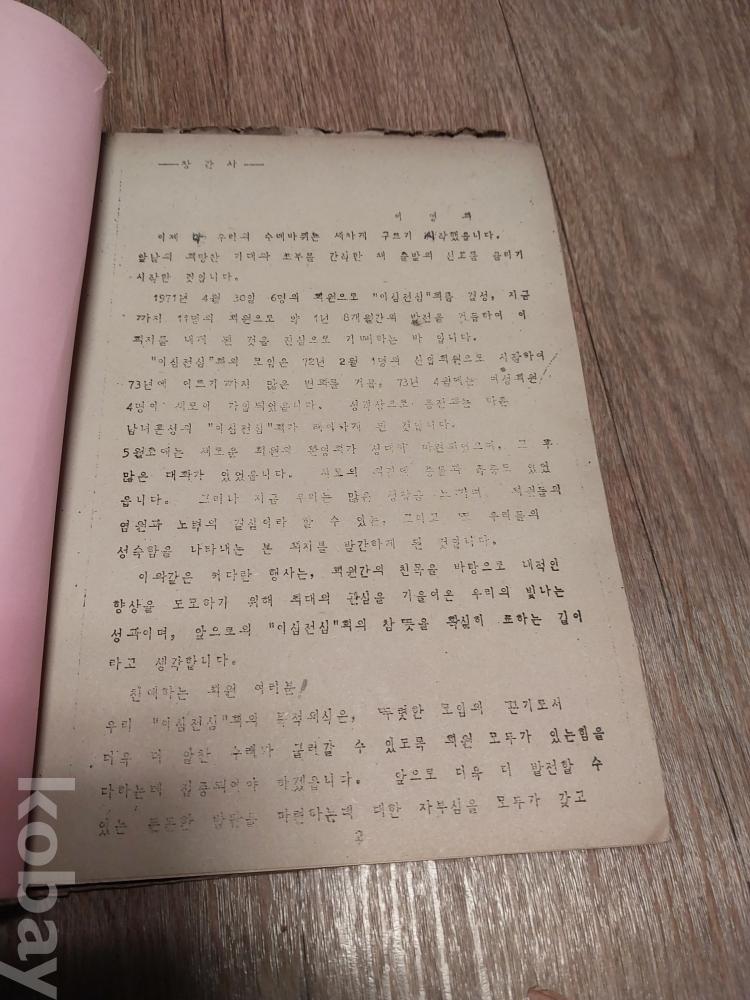 — 창 간 사 —
이 영
이제 우리의 수레바퀴는 세차게 구르기 시작했읍니다.
앞날의 희망찬 기대와 포부를 간직한 채 출발의 신호를 울리기
시작한 것입니다.
1971년 4월 30일 6명의 회원으로 "이심전심"회를 결성, 지금
까지 11명의 회원으로 약 1년 8개월간의 발전을 거듭하여 이
회지를 내게 된 것을 진심으로 기뻐하는 바 입니다.
"이심전심"회의 모임은 72년 2월 1명의 신입회원으로 시작하여
73년에 이르기 까지 많은 변화를 거쳐, 73년 4월에는 여성회원
4명이 새로이 가입되었읍니다. 성격상으로
남녀혼성의 "이심전심"회가 하게 된 것입니다.
5월초에는 새로운 회원의 환영회가 성대히 마련되었으며, 그 후
많은 대화가 있었읍니다. 있었
읍니다. 그러나 지금 우리는 많은 회원들의
염원과 노력의 결심이라 할 수 있는, 그리고 또 우리들의
성숙함을 나타내는 본 회지를 발간하게 된 것입니다.
이와같은 커다란 행사는, 회원간의 친목을 바탕으로 내적인
향상을 도모하기 위해 최대의 관심을 기울여온 우리의 빛나는
성과이며, 앞으로의 "이심전심"회의 참 뜻을 확실히 표하는 길이
라고 생각합니다.
친애하는 회원 여러분!
우리 "이심전심"회의 목적의식은, 뚜렷한 모임의 끈기로서
더욱 더 알찬 굴러갈 수 있도록 회원 모두가 있는힘을
다하는데 집중되어야 하겠읍니다. 앞으로 더욱 더 발전할 수
있는 튼튼한 마련하는데 대한 자부심을 모두가 갖고
kobay